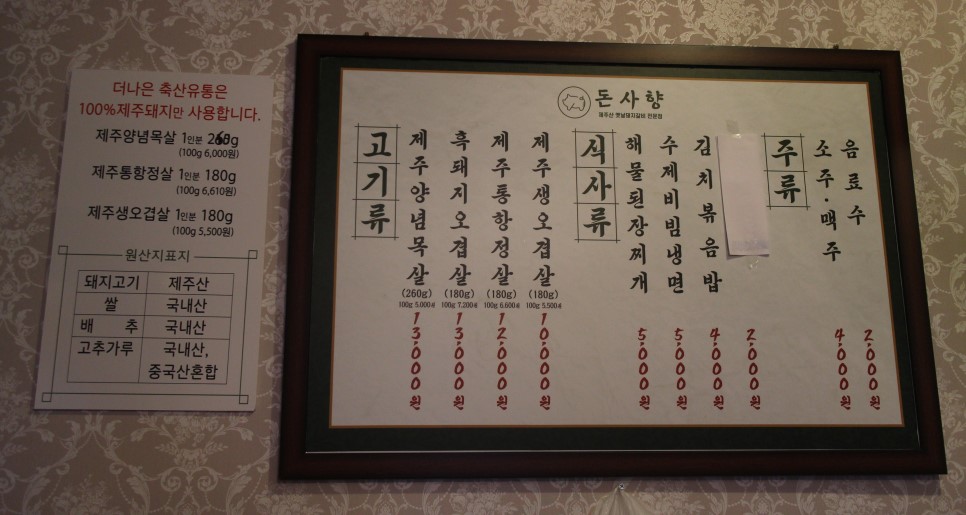 더나은 축산유통은
100%제주돼지만 사용합니다.
제주양념목살 1인분 260g
(100g 6,000원)
제주통항정살 1인분 180g
(100g 6,610원)
제주생오겹살 1인분 180g
(100g 5,500원)
원산지표지
돼지고기 제주산
쌀 국내산
배 추 국내산
고추가루 국내산,
중국산혼합
돈사향
제주산 옛날돼지갈비 전문점
고기류
제주양념목살 (260g) 100g 5,000원 13,000원
흑돼지오겹살 (180g) 100g 7,200원 13,000원
제주통항정살 (180g) 100g 6,600원 12,000원
제주생오겹살 (180g) 100g 5,500원 10,000원
식사류
해물된장찌개 5,000원
수제비빔냉면 5,000원
김치볶음밥 4,000원
2,000원
주류
소주·맥주 4,000원
음료수 2,000원